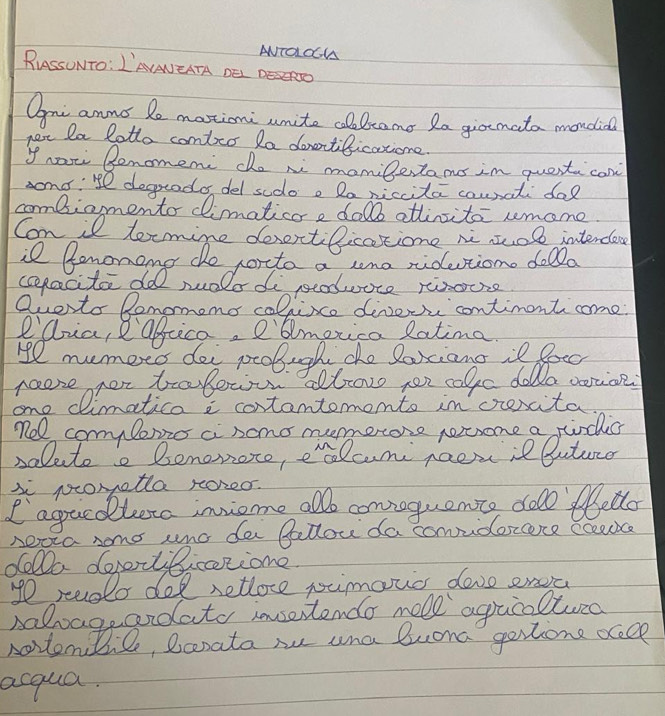 ANTOLOGIA
RIASSUNTO: L'AVANZATA DEL DESERTO
Ogni anno le nazioni unite celebrano la giornata mondiale
per la lotta contro la desertificazione.
I vari fenomeni che si manifestano in questi casi
sono: Il degrado del suolo e la siccità causati dal
cambiamento climatico e dalle attività umane.
Con il termine desertificazione si vuole intendere
il fenomeno che porta a una riduzione della
capacità del suolo di produrre risorse.
Questo fenomeno colpisce diversi continenti come:
l'Asia, l'Africa e l'America latina.
Il numero dei profughi che lasciano il loro
paese per trasferirsi altrove per colpa della variazi
one climatica è costantemente in crescita.
Nel complesso ci sono numerose persone a rischio
salute e benessere, e in alcuni paesi il futuro
si prospetta roseo.
L'agricoltura insieme alle conseguenze dell'effetto
serra sono uno dei fattori da considerare causa
della desertificazione.
Il ruolo del settore primario deve essere
salvaguardato investendo nell'agricoltura
sostenibile, basata su una buona gestione dell
acqua.